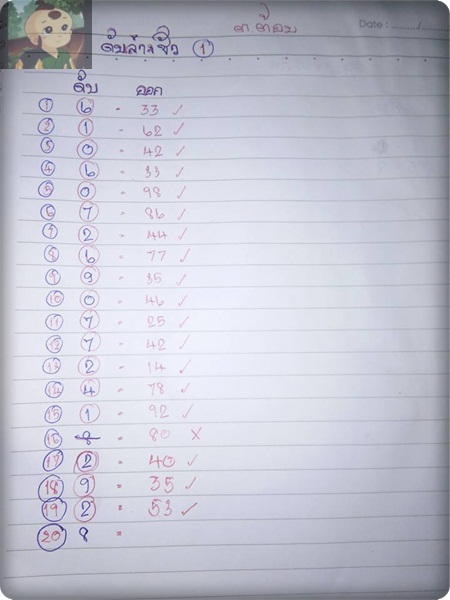 ต.ต้อม
Date :
ดับล่างชัว 1
ดับ ออก
1 6 - 33 ✓
2 1 - 62 ✓
3 0 - 42 ✓
4 6 - 33 ✓
5 0 - 98 ✓
6 7 - 86 ✓
7 2 - 44 ✓
8 6 - 77 ✓
9 9 - 35 ✓
10 0 - 46 ✓
11 7 - 25 ✓
12 7 - 42 ✓
13 2 - 14 ✓
14 4 - 78 ✓
15 1 - 92 ✓
16 8 = 80 X
17 2 = 40 ✓
18 9 = 35 ✓
19 2 = 53 ✓
20 8 =